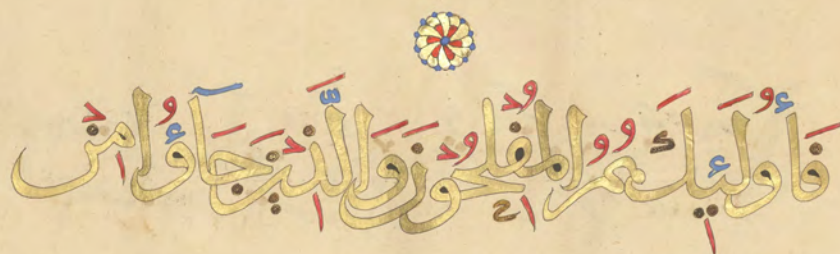 فَأُوْلَٰٓئِكَ هُمُ الْمُفْلِحُونَ وَالَّذِينَ جَآءُو مِنۢ